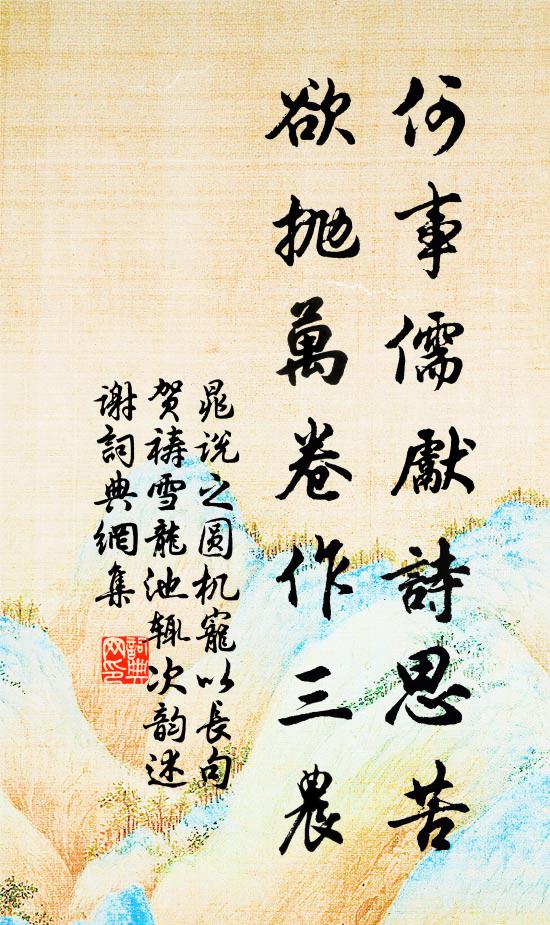 何事儒獻詩思苦
欲抛萬卷作三農
晁说之圆机寵以长句
贺祷雪龍池辄次韵述
谢詞典網集
詞典
网印